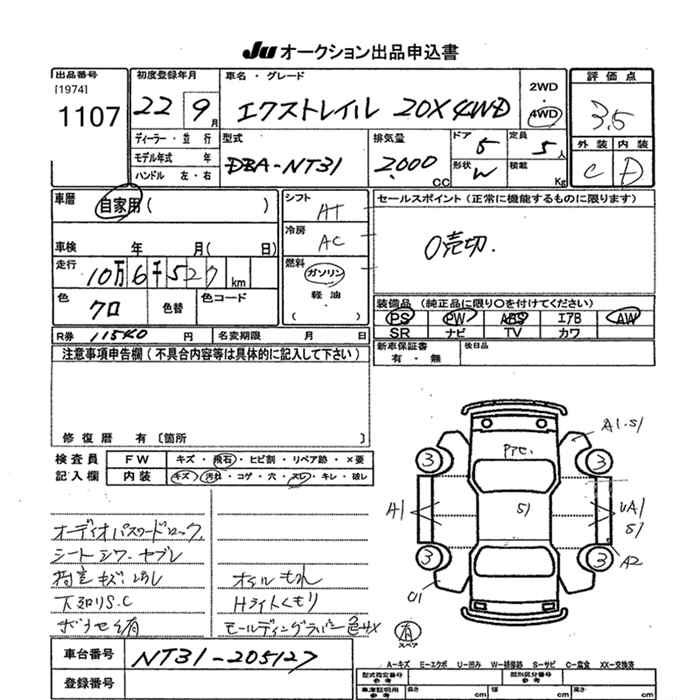 Ju オークション出品申込書
出品番号
[1974]
1107
初度登録年月
22 9月
車名・グレード
エクストレイル 20X 4WD
2WD
・
4WD
評価点
3.5
ディーラー・並行
モデル年式 年
ハンドル 左・右
型式
DBA-NT31
排気量
2,000 cc
ドア 5
定員 5人
形状 W
積載 Kg
外装 内装
C D
車歴
自家用( )
シフト
AT
セールスポイント(正常に機能するものに限ります)
〇売切.
冷房
AC
車検 年 月( 日)
走行
10万6千527 km
燃料
ガソリン
軽油
( )
色
クロ
色替
色コード
装備品 (純正品に限り〇を付けてください)
PS PW ABS エアB AW
SR ナビ TV カワ
R券 11540 円
名変期限 月 日
新車保証書
有・無
後日品
注意事項申告欄(不具合内容等は具体的に記入して下さい)
修復歴 有〔箇所 〕
検査員
記入欄
FW キズ・飛石・ヒビ割・リペア跡・×要
内装 キズ・汚れ・コゲ・穴・スレ・キレ・破レ
オーディオパスワードロック.
シートシワ・ヤブレ
キズ
オイルもれ
下回りS.C
Hライトくもり
モールディングラバー色サメ
アたて.
A1.S1
3 3
A1
S1
UA1
S1
3 3
A2
U1
有
スペア
車台番号
NT31-205127
登録番号
A-キズ E-エクボ U-凹み W-補修跡 S-サビ C-腐食 XX-交換済
型式指定番号
参考
類別区分番号
参考
車庫証明用
参考
長さ cm
幅 cm
高さ cm